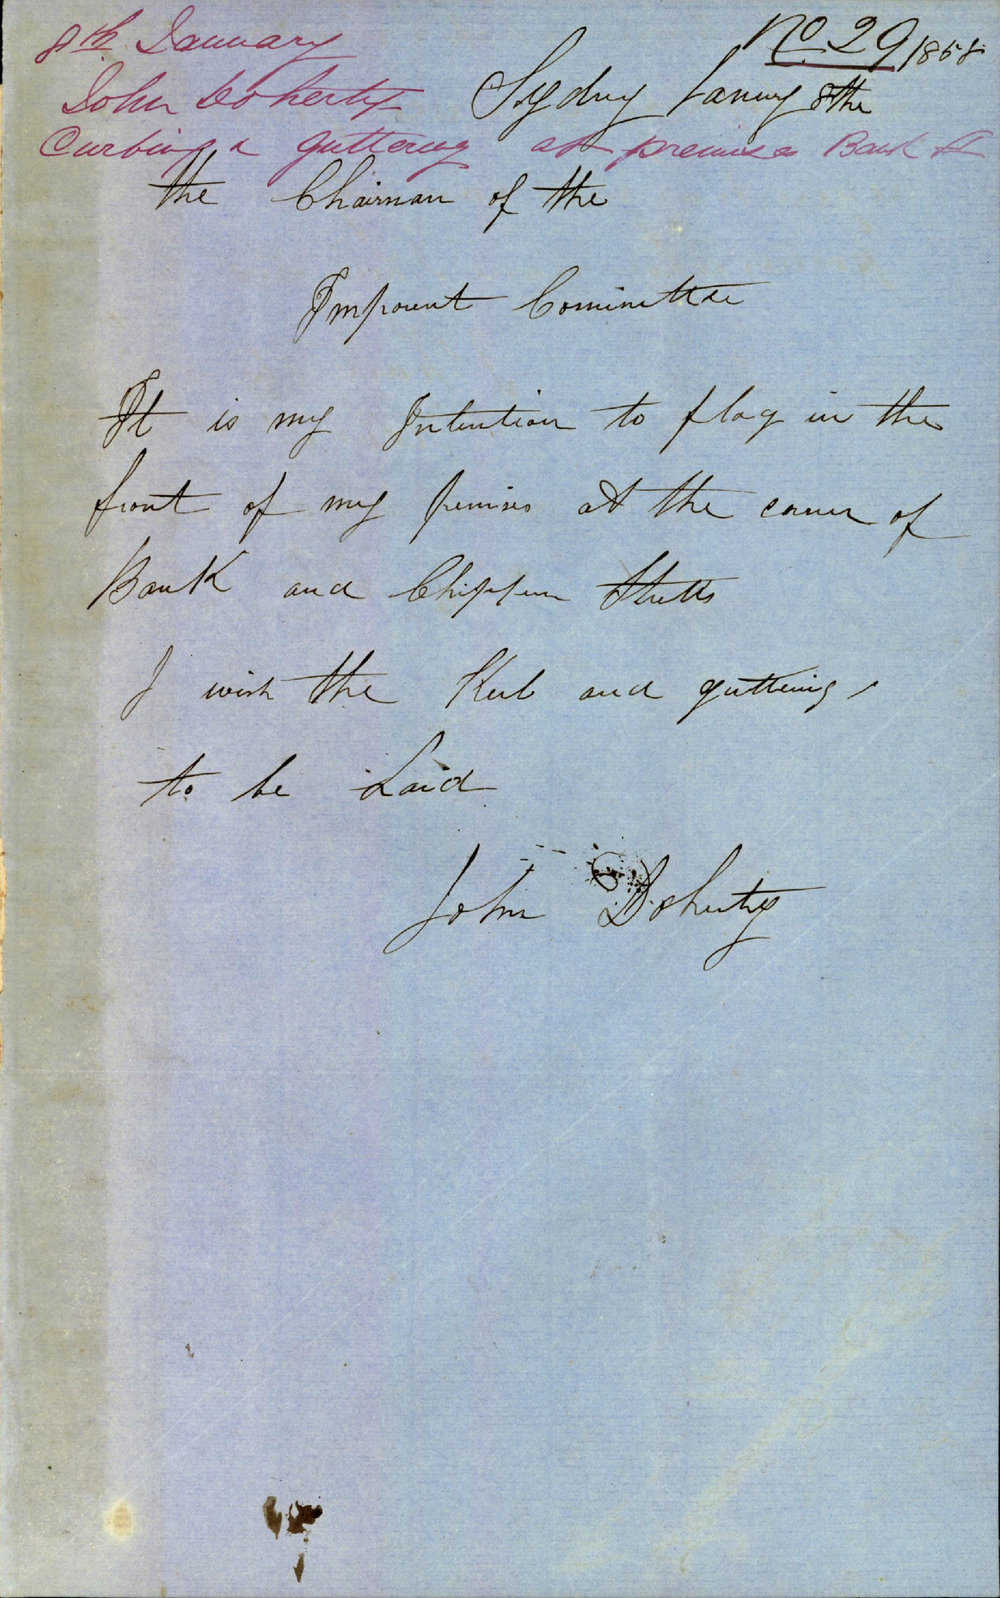 8th January
No 29 1858
John Doherty
Sydney January 8the
Curbing & guttering at premises Bank St
the Chairman of the
Committee
It is my Intention to flag in the
front of my premises at the corner of
Bank and Chippen Streets
I wish the Kerb and guttering,
to be Laid
John Doherty